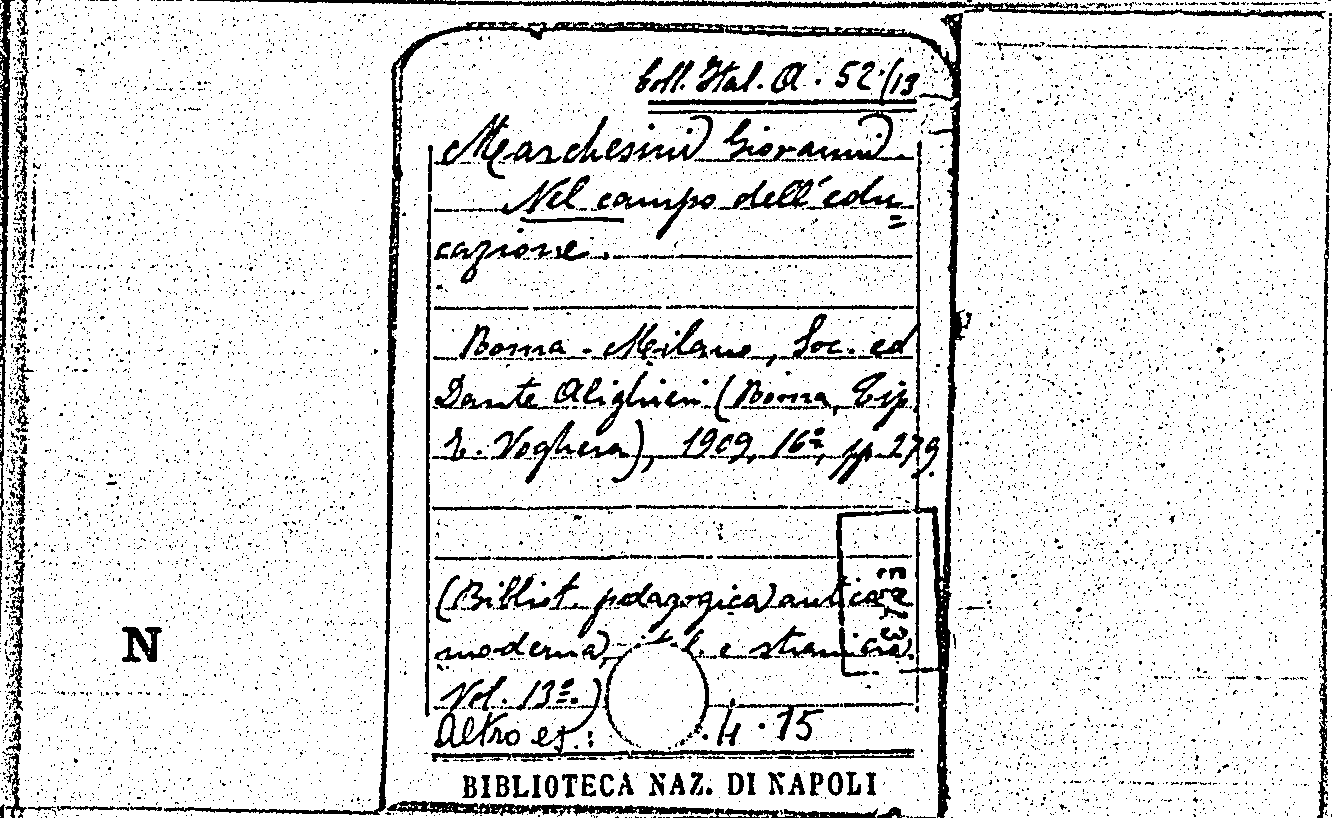 Coll. Ital. A. 52/13
Marchesini Giovanni.
Nel campo dell'edu=
cazione.
Roma - Milano, Soc. ed
Dante Alighieri (Roma, Tip.
E. Voghera), 1909, 16º, pp 279.
(Bibliot. pedagogica antica
moderna, ital. e straniera.
Vol. 13º.)
Altro es.: .4.15
N
BIBLIOTECA NAZ. DI NAPOLI